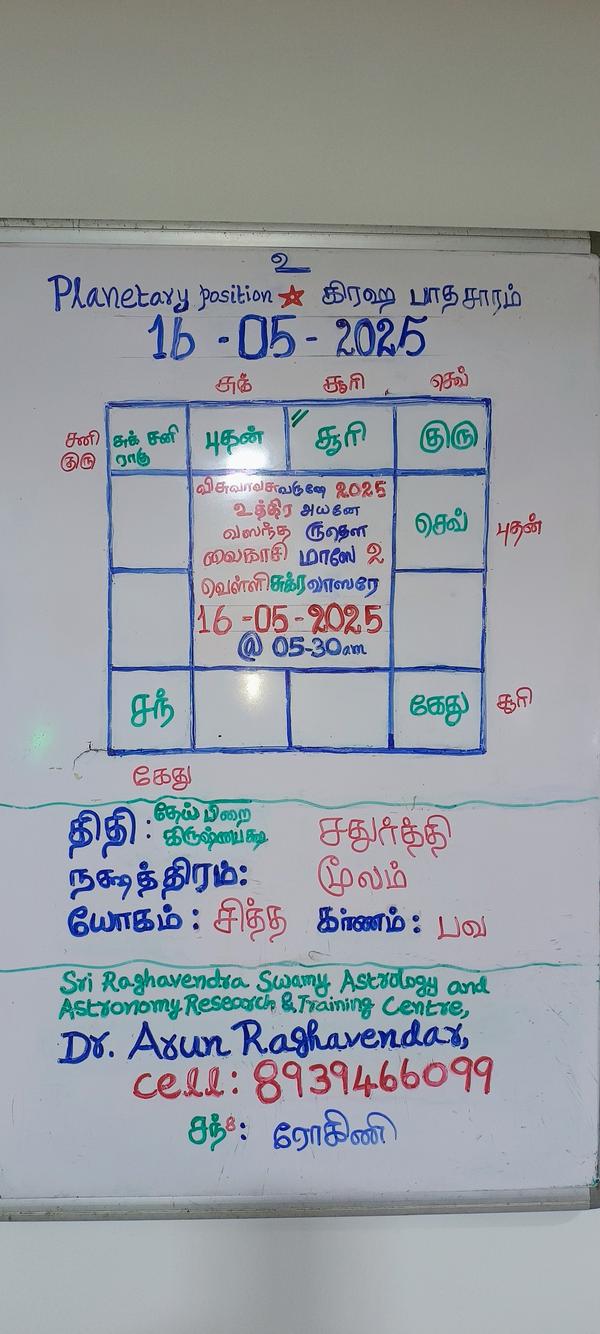 உ
Planetary position ★ கிரஹ பாதசாரம்
16 -05 - 2025
சுக் சூரி செவ்
சனி
குரு
சுக் சனி
ராகு
புதன்
சூரி
குரு
விசுவாவசுவருஷே 2025
உத்திர அயனே
வஸந்த ருதௌ
வைகாசி மாஸே 2
வெள்ளி சுக்ரவாஸரே
16 -05-2025
@ 05-30am
செவ்
புதன்
சந்
கேது
சூரி
கேது
திதி : தேய்பிறை
கிருஷ்ணபக்ஷ சதுர்த்தி
நக்ஷத்திரம்: மூலம்
யோகம் : சித்த கர்ணம் : பவ
Sri Raghavendra Swamy Astrology and
Astronomy Research & Training Centre,
Dr. Arun Raghavendar,
Cell : 8939466099
சந் 8 : ரோகினி